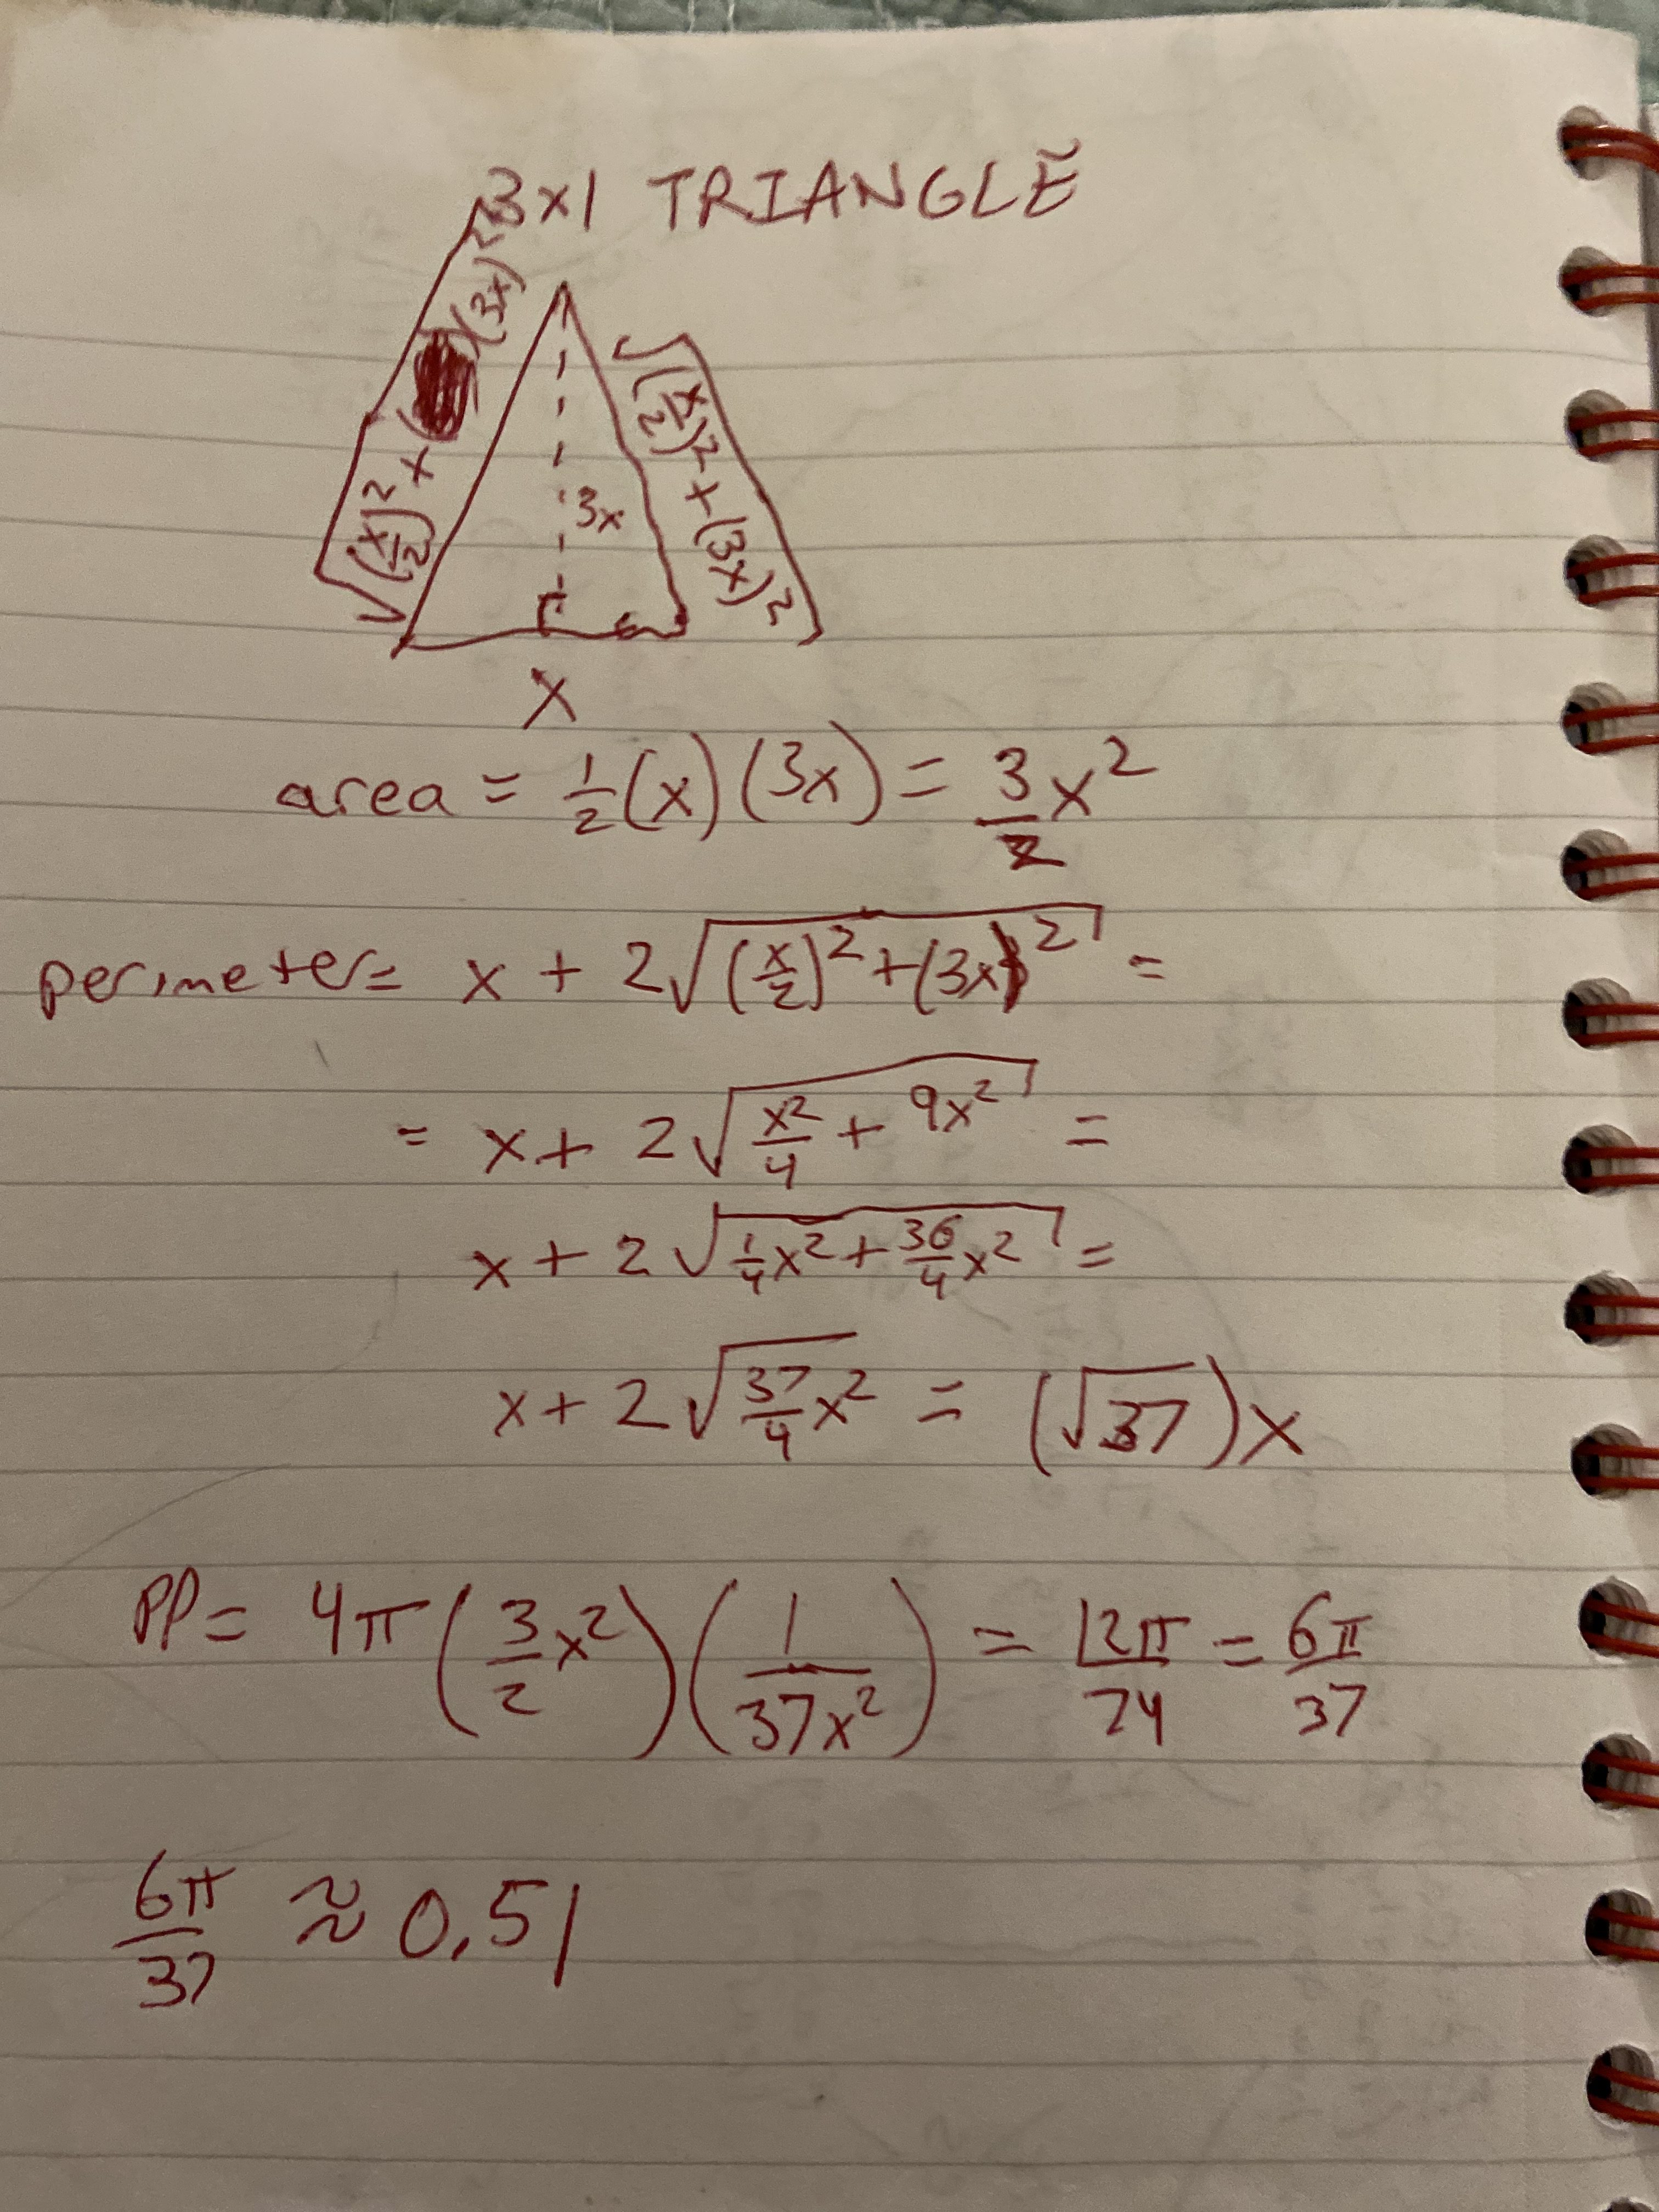 3x1 TRIANGLE
√(x/2)² + (3x)²
√(x/2)² + (3x)²
3x
x
area = 1/2 (x) (3x) = 3/2 x²
perimeter = x + 2√(x/2)² + (3x)² =
= x + 2√x²/4 + 9x² =
x + 2√1/4 x² + 36/4 x² =
x + 2√37/4 x² = (√37)x
PP = 4π (3/2 x²) (1/37x²) = 12π/74 = 6π/37
6π/37 ≈ 0.51